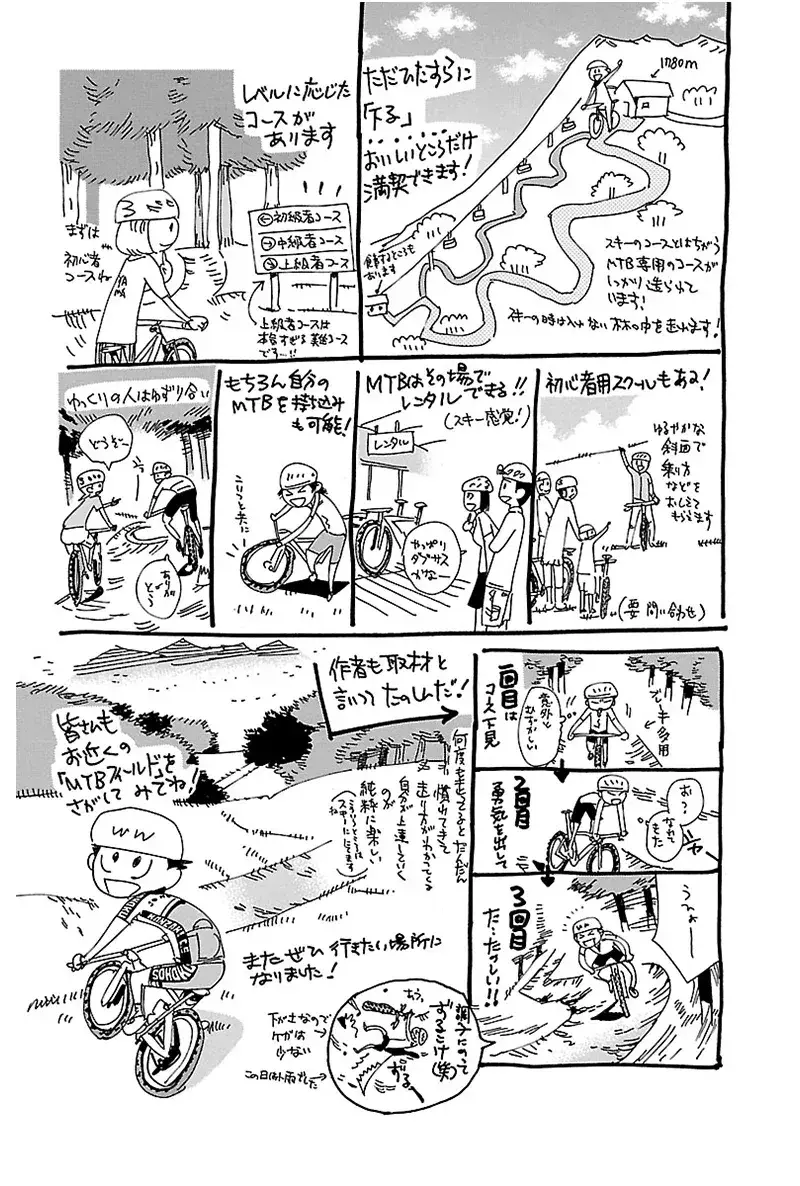 ただひたすらに
「下る」
おいしいところだけ
満喫できます!
1780m
スキーのコースとはちがう
MTB専用のコースが
しっかり造られて
います!
スキーの時は入れない林の中を走れます!
休憩するところも
あります
レベルに応じた
コースが
あります
←初級者コース
→中級者コース
上級者コース
まずは
初心者
コースね
上級者コースは
本当すぎる
コース
です…!!
初心者用スクールもある!
ゆるやかな
斜面で
乗り方
などを
おしえて
もらえます
(要問い合わせ)
MTBはその場で
レンタルできる!!
(スキー感覚!)
レンタル
やっぱり
ダブサス
かなー
もちろん自分の
MTBを持込み
も可能!
ゆっくりの人はゆずり合い
どうぞー
ありが
とう
作者も取材と
言いつつたのしんだ!
一回目
は
コース下見
ブレーキ多用
意外と
むずかしい
2回目
勇気を出して
お?
なれて
きた
3回目
た・たのしい!!
うひょー
何度も走ってるとだんだん
慣れてきて
走り方がわかってくる
自分が上達していく
のが
純粋に楽しい
(こういうところは
スキーににてます
ね)
皆さんも
お近くの
「MTBフィールド」を
さがしてみてね!
SOHO
またぜひ行きたい場所に
なりました!
調子にのって
ずるこけ(笑)
ずる
下が土なので
ケガは
少ない
この日は小雨でした